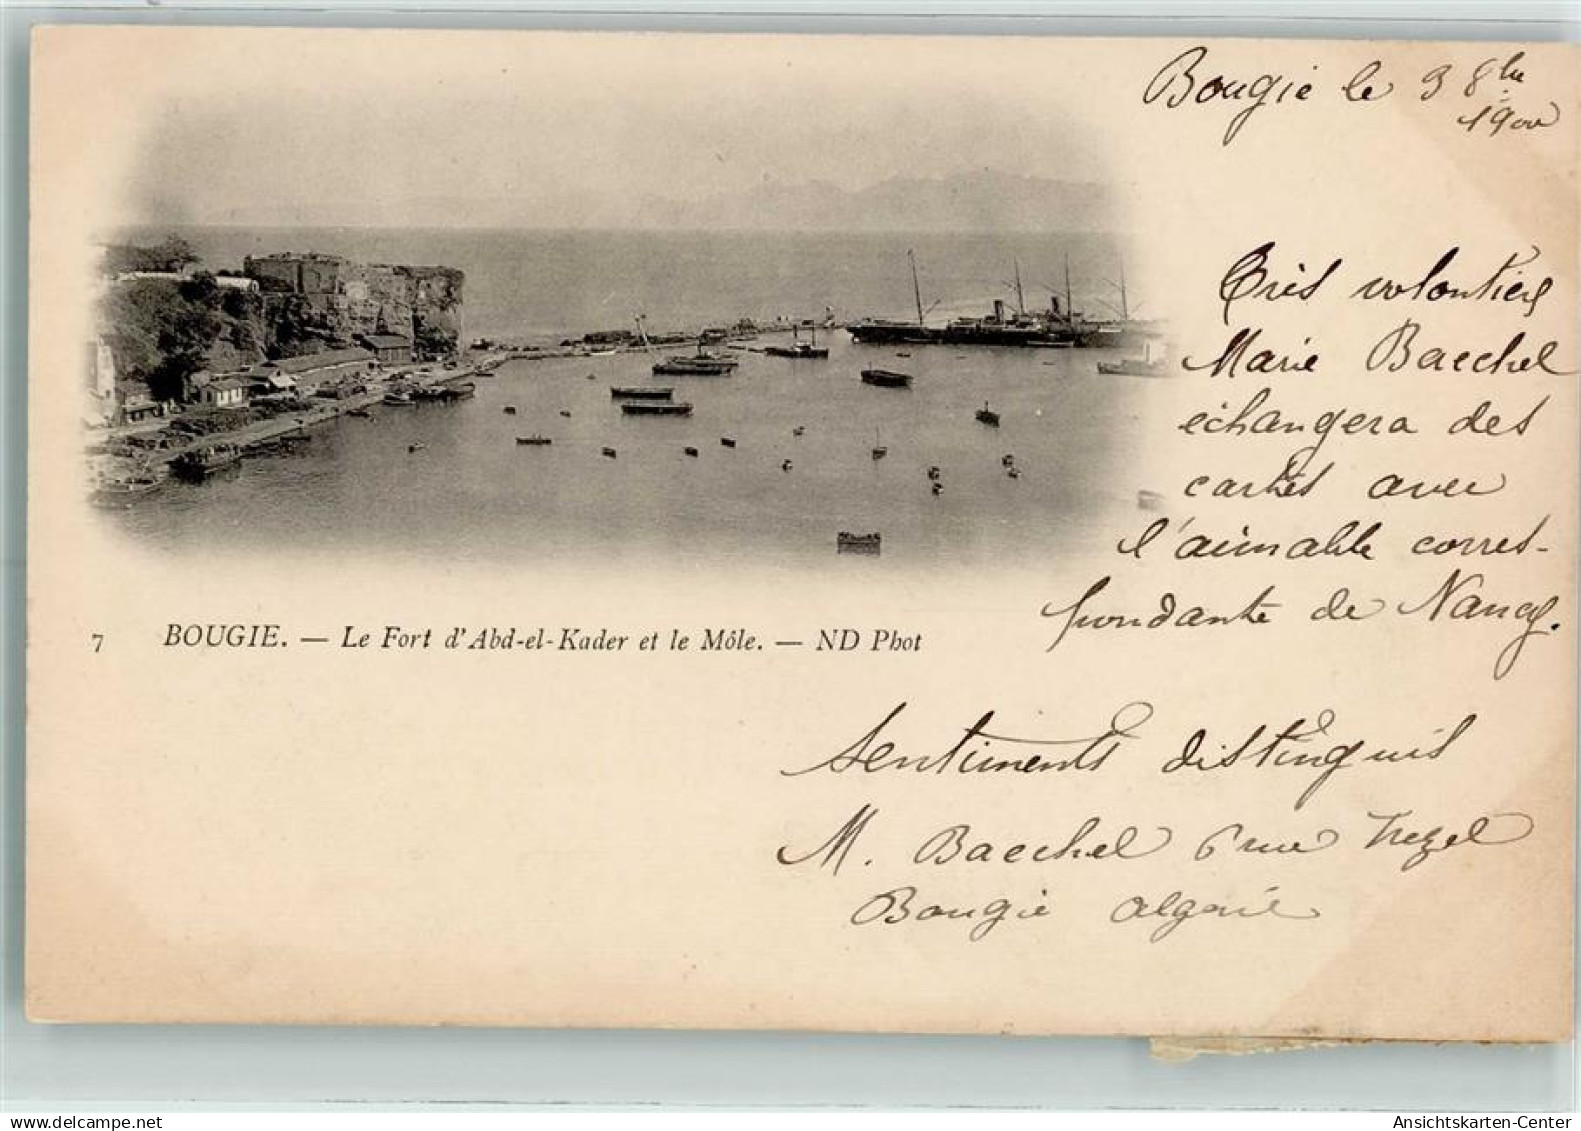 Bougie le 3 8bre
1900
Très volontiers
Marie Baechel
échangera des
cartes avec
l'aimable corres-
pondante de Nancy.
7 BOUGIE. — Le Fort d'Abd-el-Kader et le Môle. — ND Phot
Sentiments distingués
M. Baechel 6 rue Trezel
Bougie Algérie
www.delcampe.net
Ansichtskarten-Center